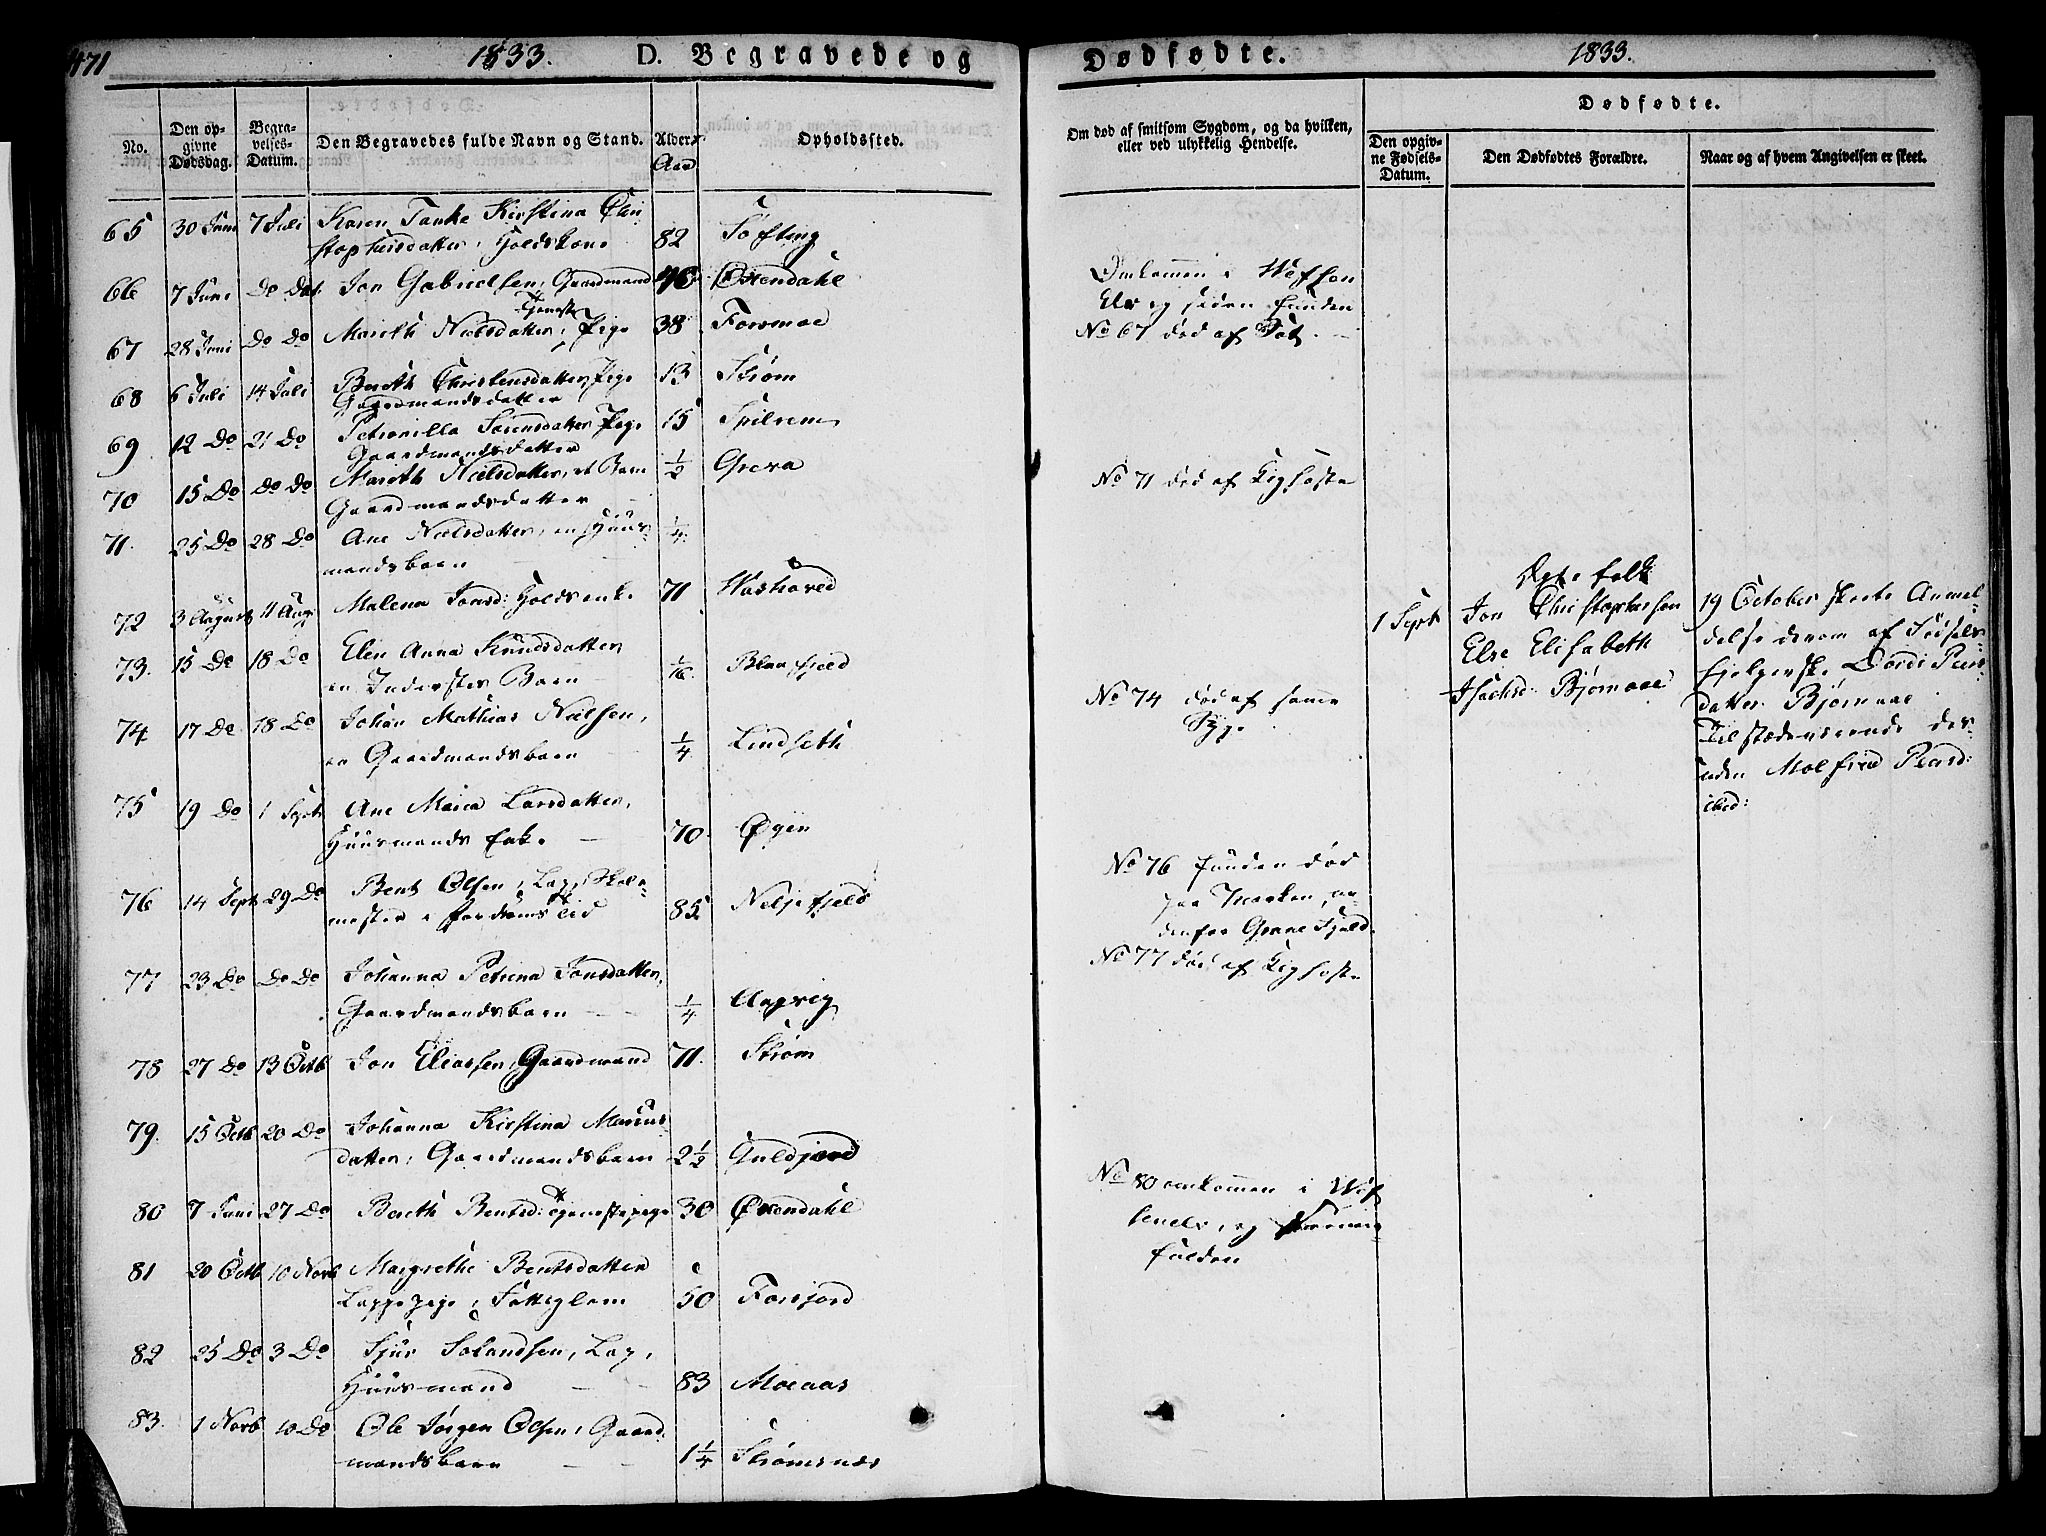 471
1833. D. Begravede og
No.
Den op-
givne
Dødsdag.
Begra-
velses-
Datum.
Den Begravedes fulde Navn og Stand.
Alder.
Aar
Opholdssted.
65 30 Juni 7 Juli Karen Tanke Kirstina Chri
stophersdatter, Holdskone 82 Søfting
66 7 Juni Do Do Jon Gabrielsen, Gaardmand 46 Øxendahl
Tjeneste
67 28 Juni Do Do Marith Nielsdatter, Pige 38 Forsmoe
68 6 Juli 14 Juli Berith Christensdatter, Pige 13 Strøm
Gaardmandsdatter
69 12 Do 21 Do Petronilla Sørensdatter Pige 15 Spilrem
Gaardmandsdatter
70 15 Do Do Do Marith Nielsdatter, et Barn 1/2 Grova
Gaardmandsdatter
71. 25 Do 28 Do Ane Nielsdatter, en Huus- 1/4
mandsbarn
72 3 August 11 Aug Malena Jonsd: Holdsenke 71 Washoved
73. 15 Do 18 Do Elen Anna Knudsdatter
en Inderstes Barn 1/16 Blaafjeld
74 17 Do 18 Do Johan Mathias Nielsen,
en Gaardmandsbarn 1/4 Lindseth
75 19 Do 1 Sept Ane Maria Larsdatter,
Huusmands Enke 70. Øyen
76 14 Sept 29 Do Bent Olsen, Lap, Skole-
mester i 85
77 23 Do Do Do Johanna Petrina Jonsdatter,
Gaardmandsbarn 1/4
78 27 Do 13 Octb Jon Eliassen, Gaardmand 71. Strøm
79. 15 Octb 20 Do Johanna Kirstina Marcus-
datter, Gaardmandsbarn 2 1/2 Guldjord
80 7 Juni 27 Do Berith Bentsd: Tjenestepige 30 Øxendahl
81 20 Octb 10 Novb Margrethe Bentsdatter
Lappepige, Fatteglem 50 Forsjord
82 25 Do 3 Do Sjur Lap,
Huusmand 83 Moeaas
83. 1 Novb 10 Do Ole Jørgen Olsen, Gaard-
mandsbarn 1 1/4 Strømsnæs
Dødfødte. 1833.
Om død af smitsom Sygdom, og da hvilken,
eller ved ulykkelig Hendelse.
Dødfødte.
Den opgiv-
ne Fødsels-
Datum.
Den Dødfødtes Forældre.
Naar og af hvem Angivelsen er skeet.
Omkommen i Wefsen
Elv og siden funden
No 67 død af
No 71 død af Kighoste
No 74 død af samme
Syge
No 76 funden død
paa Marken,
Grane Fjeld
No 77 død af Kighoste
No 80 omkommen i Wef
senelv, og
funden
Ægtefolk
1 Sept Jon Christophersen
Else Elisabeth
Isachsd: Bjørnaae
19 October skeete Anmel-
delse derom af Fødsels-
hjelperske Dordi Peers
datter Bjørnaae
Tilstædeværende des-
uden Molfried Peersd:
ibid: